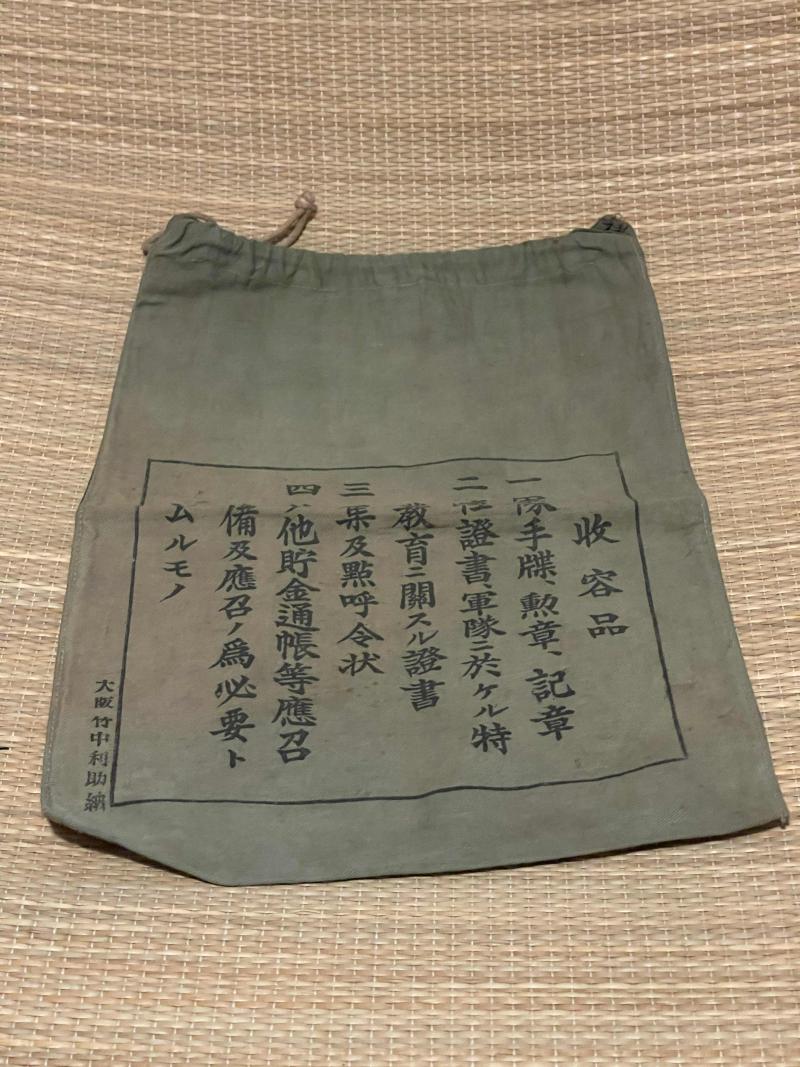 收容品
一 隊手牒、勲章、記章
二 任證書、軍隊ニ於ケル特
教育ニ關スル證書
三 及點呼令状
四 他貯金通帳等應召
備及應召ノ爲必要ト
ムルモノ
大阪竹中利助納